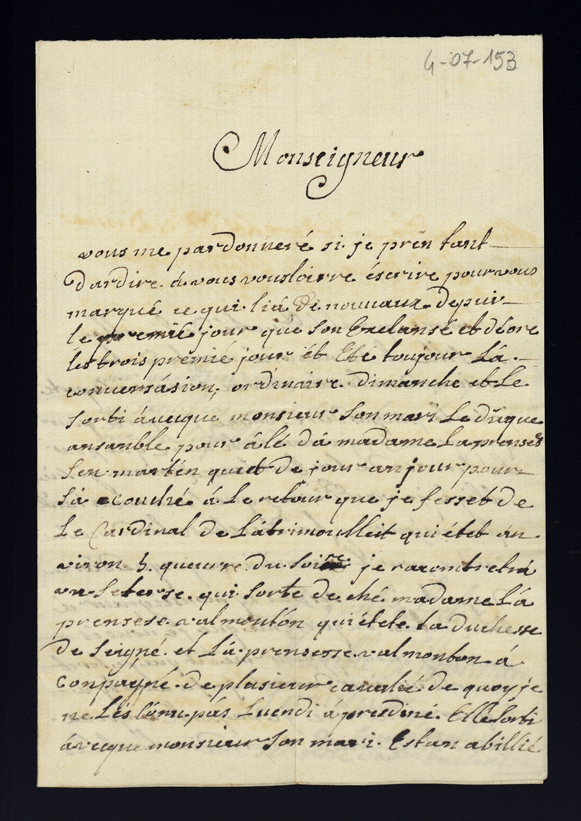 4-07-153
Monseigneur
vous me pardonneré si je pren tant
dardire à vous vousloirre éscrire pour vous
marqué ce qui liá de nouvaux depuis
le premié jour que son Exelansé et déore
les trois premié jour ét Eté toujour Lá
conversásion, ordinaire dimanche et Le
sorti ávecque monsieur son mari Le dúque
ansanble pour álé dá madame La prensés
san marten qui et de jour an jour pour
sá écouché á Le retour que je fesset de
Le Cardinal de Látrimoulleit qui étet an
viron 5 queurre du soir je racontretrá
un seterse qui sorte de ché madame Lá
prensese valmontón qui étete La duchesse
de seigné et Lá prensesse valmonton á
conpagné de plasieur cavalié de quoy je
ne Les lámi pás Luendi á presdiné Elle sorti
ávecque monsieur son mari Estan abillié